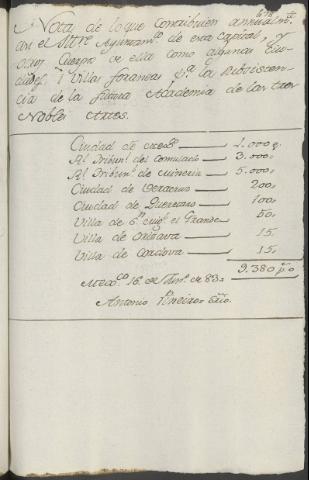 Nota de lo que contribuien annualm.te
asi el Ill.re Ayuntam.to de esta capital, y
otros cuerpos de ella como algunas Ciu-
dades, i Villas foraneas p.a la subsisten-
cia de la futura Academia de las tres
Nobles Artes.
Ciudad de Mex.co 1.000 p.
R.l Tribun.l del Consulado 3.000,,
R.l Tribun.l de Mineria 5.000,,
Ciudad de Veracruz 200,,
Ciudad de Queretaro 100,,
Villa de S.n Mig.l el Grande 50,,
Villa de Orizava 15,,
Villa de Cordova 15,,
9.380 p.s
Mex.co 16 de de 83,,
Antonio Piñeiro Srio.